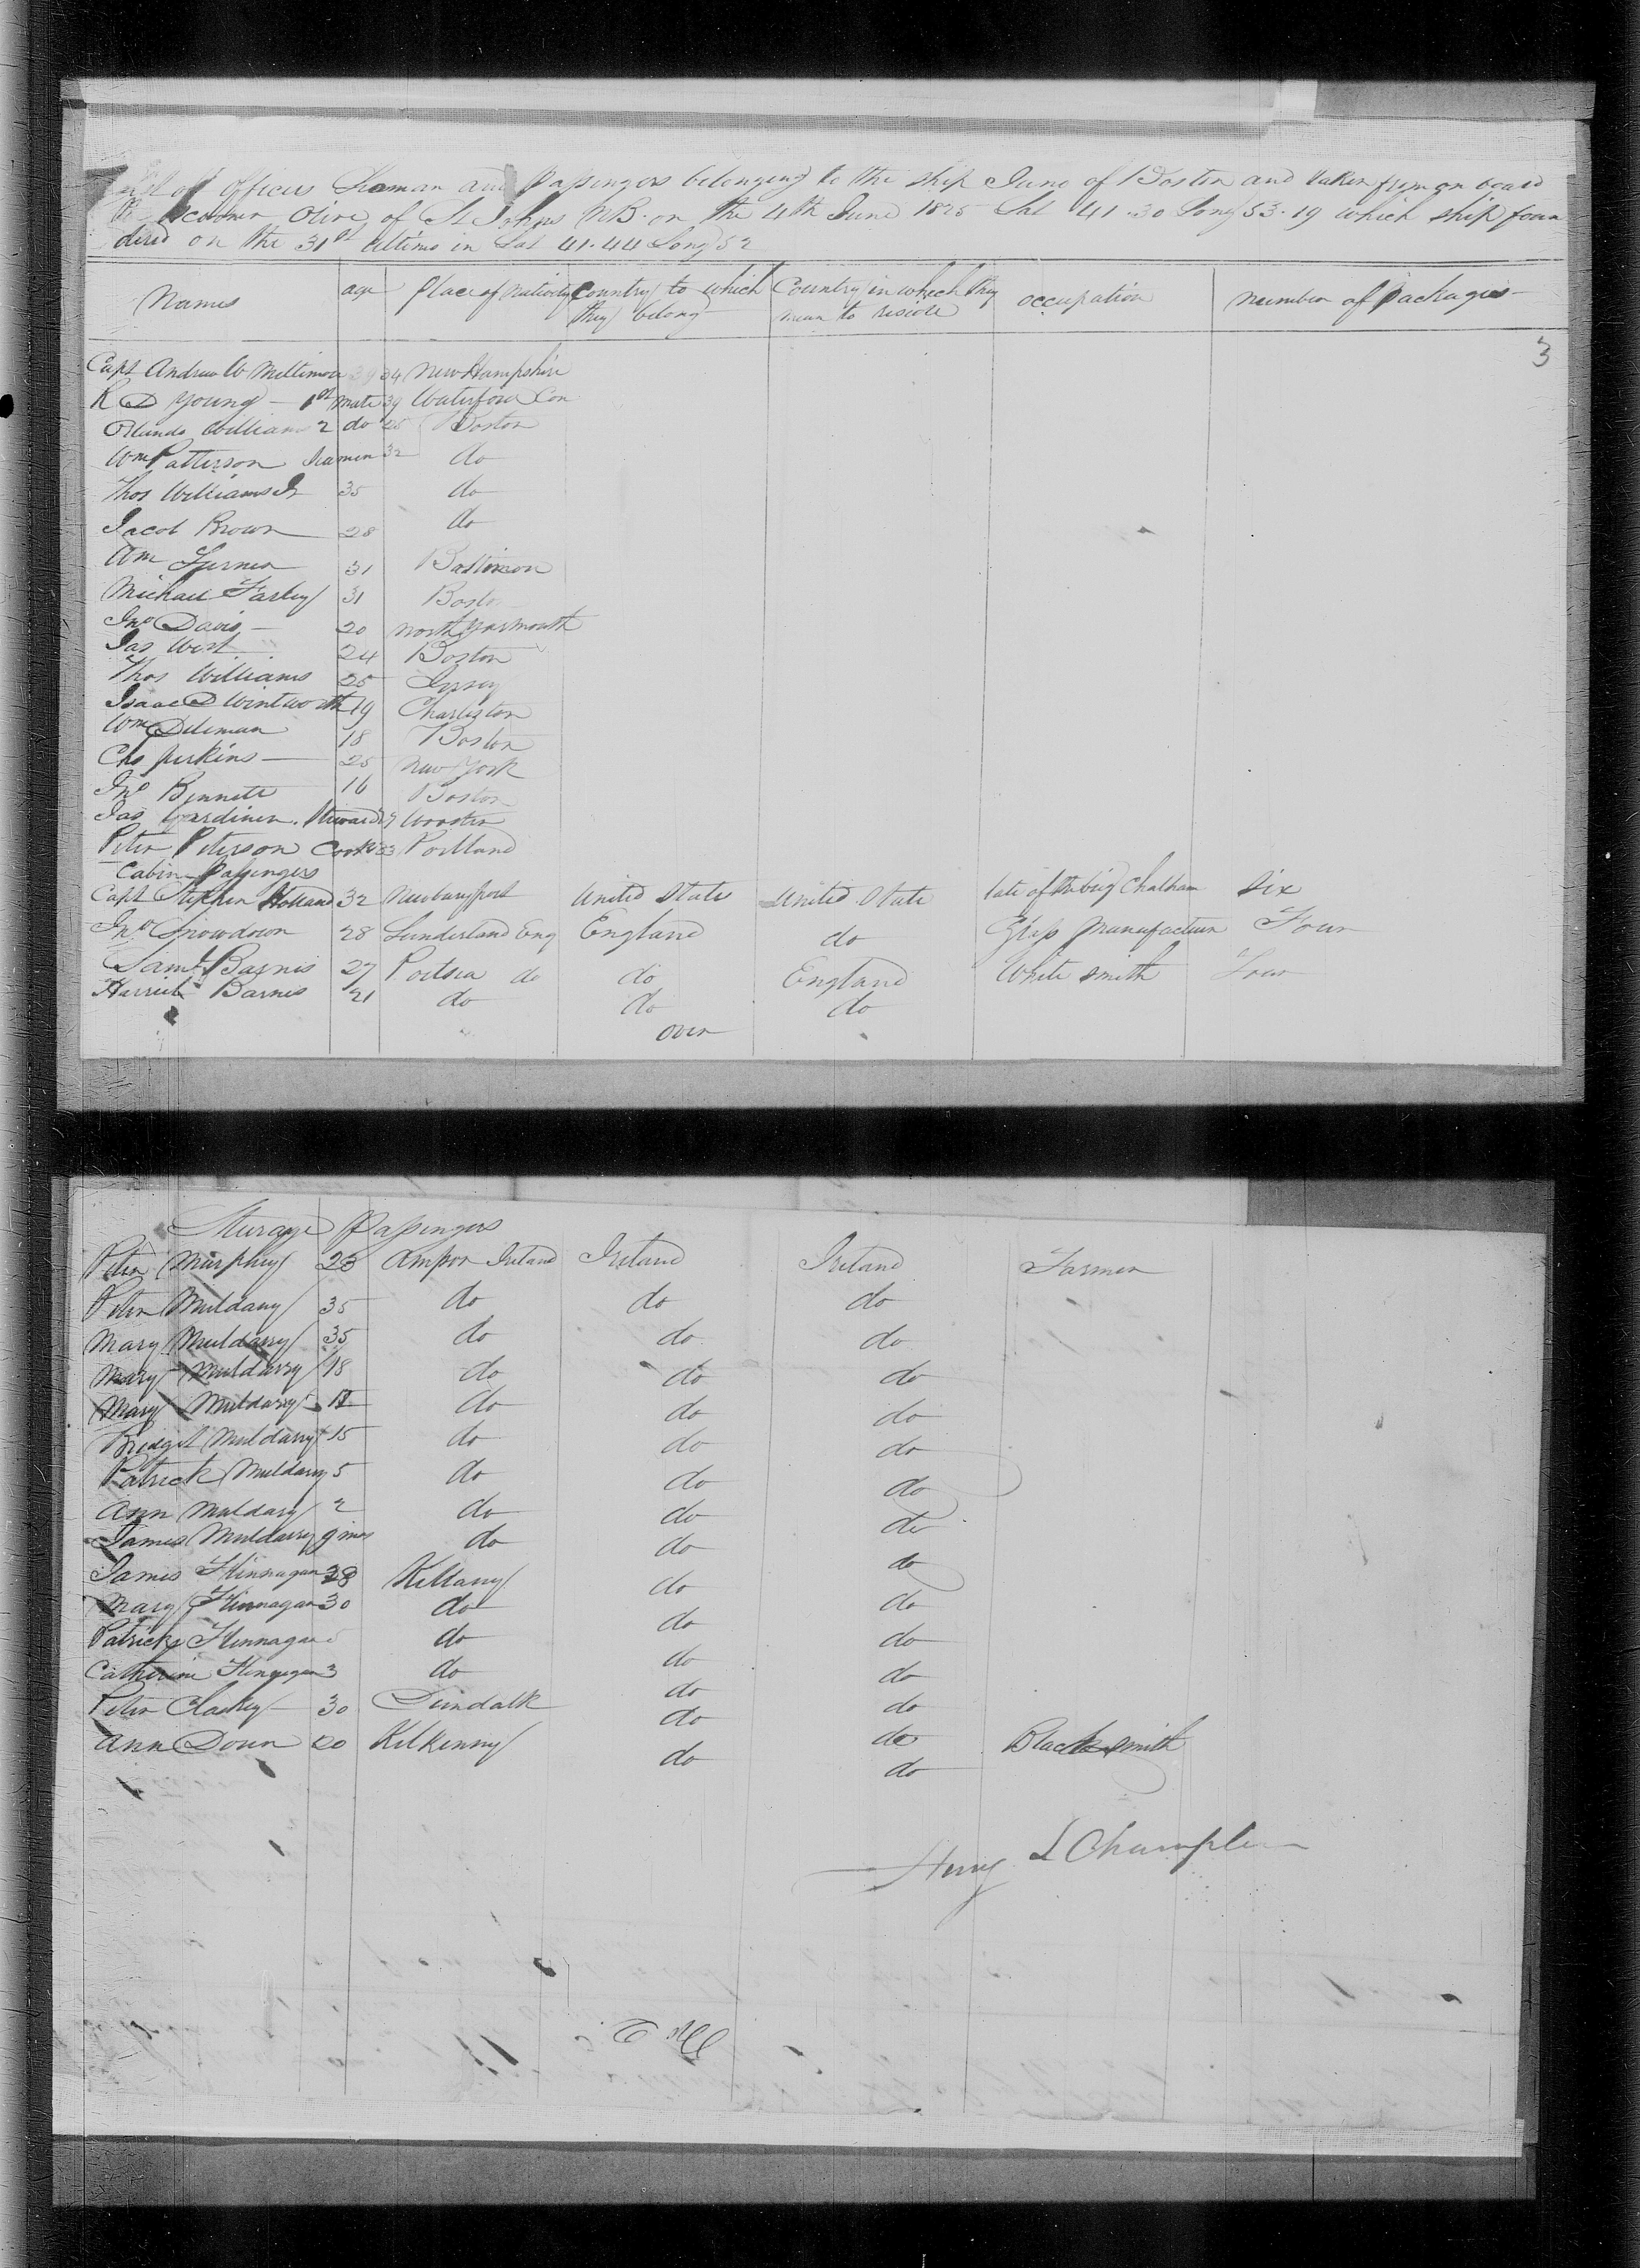 List of officers Seaman and Passengers belonging to the ship Juno of Boston and taken from on board
Schooner Olive of St Johns NB. on the 4th June 1825 Lat 41.30 Long 53.19 which ship foun
dered on the 31st ultimo in Lat 41.44 Long 52
Names age Place of Nativity Country to which they belong Country in which they mean to reside occupation number of Packages
3
Capt Andrew W Miltimore 34 New Hampshire
R D Young - 1st mate 39 Waterford Con
Orlando Williams 2 do 25 Boston
Wm Patterson Seamen 32 do
Thos Williams Jr 35 do
Jacob Brown 28 do
Wm Turner 31 Baltimore
Michael Farley 31 Boston
Jno Davis - 20 North Yarmouth
Jas West 24 Boston
Thos Williams 25 Jersey
Isaac D Wintworth 19 Charleston
Wm Dileman 18 Boston
Chs Perkins - 25 New York
Jno Bennett 16 Boston
Jas Gardiner. Steward Wooster
Peter Peterson Cook 33 Portland
Cabin Passengers
Capt Stephen Holland 32 Newburyport United States United State late of the brig Chatham Six
Jno Snowdown 28 Sunderland Eng England do Glass Manufacturer Four
Saml Barnes 27 Portsea do do England White Smith Four
Harriet Barnes 21 do do do
over
Sturage Passengers
Peter Murphey 25 Ampor Ireland Ireland Ireland Farmer
Peter Muldary 35 do do do
Mary Muldarry 35 do do do
Mary Muldarry 18 do do do
Mary Muldarry do do do
Bridget Muldarry 15 do do do
Patrick Muldarry 5 do do do
Ann Muldary 2 do do do
James Muldarry 9 mos do do do
James Flinnagan 28 Killany do do
Mary Flinnagan 30 do do do
Patrick Flinnagan 5 do do do
Catherine Flinnagan 3 do do do
Peter Claskey 30 Dundalk do do
Ann Down 20 Kilkenny do do Blacksmith
do
Henry L Champlin
No 2